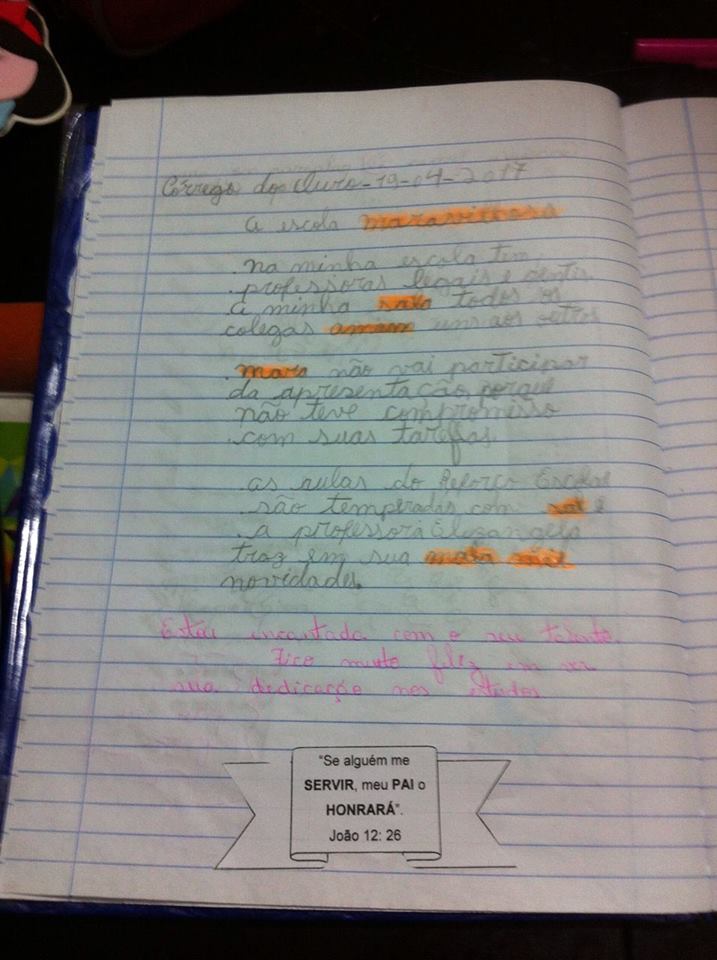 Córrego do Ouro-19-04-2017
A escola maravilhosa
na minha escola tem
professoras legais e
a minha sala todos os
colegas amam uns aos outros
mara não vai participar
da apresentação porque
não teve compromisso
com suas tareffas
as aulas do Reforço Escolar
são temperadas com sal e
a professora Elizangela
traz em sua mala mais
novidades.
Estou encantada com o seu talento.
Fico muito feliz em ver
sua dedicação nos estudos
"Se alguém me
SERVIR, meu PAI o
HONRARÁ".
João 12: 26